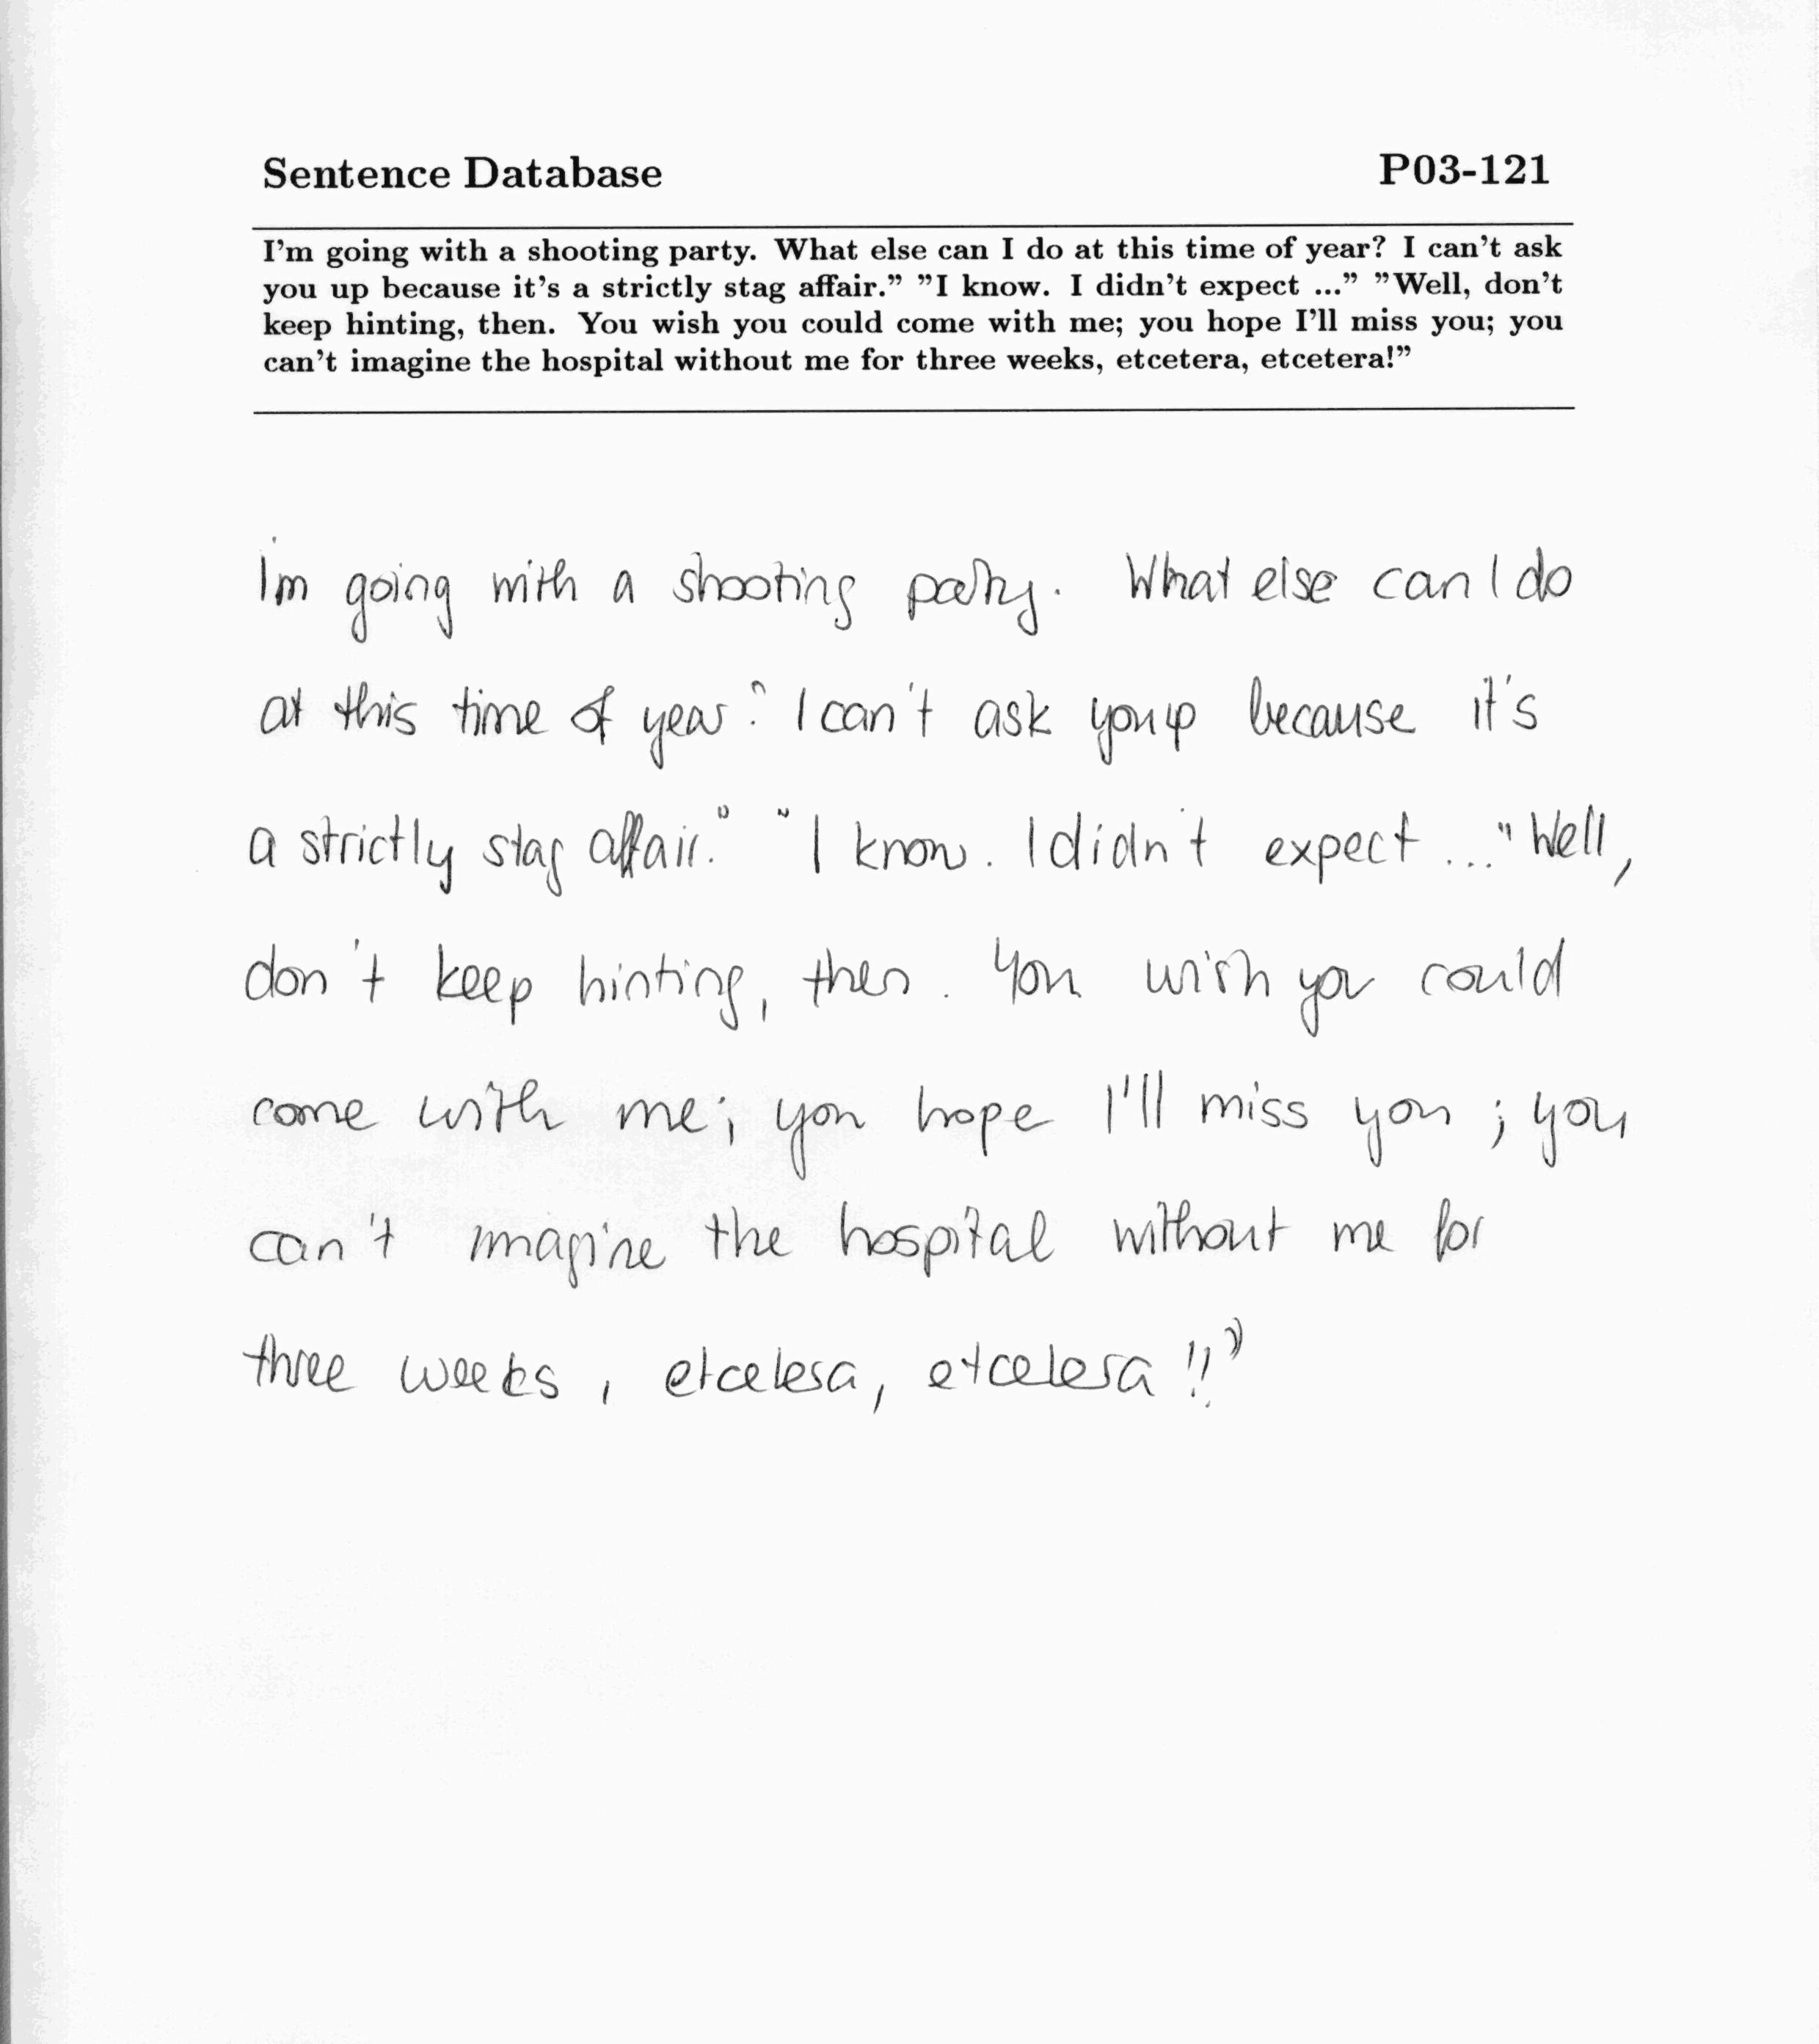 Sentence Database P03-121
I'm going with a shooting party. What else can I do at this time of year? I can't ask
you up because it's a strictly stag affair." "I know. I didn't expect ..." "Well, don't
keep hinting, then. You wish you could come with me; you hope I'll miss you; you
can't imagine the hospital without me for three weeks, etcetera, etcetera!"
I'm going with a shooting party. What else can I do
at this time of year? I can't ask you up because it's
a strictly stag affair." "I know. I didn't expect ..." Well,
don't keep hinting, then. You wish you could
come with me; you hope I'll miss you; you
can't imagine the hospital without me for
three weeks, etcetera, etcetera!!"